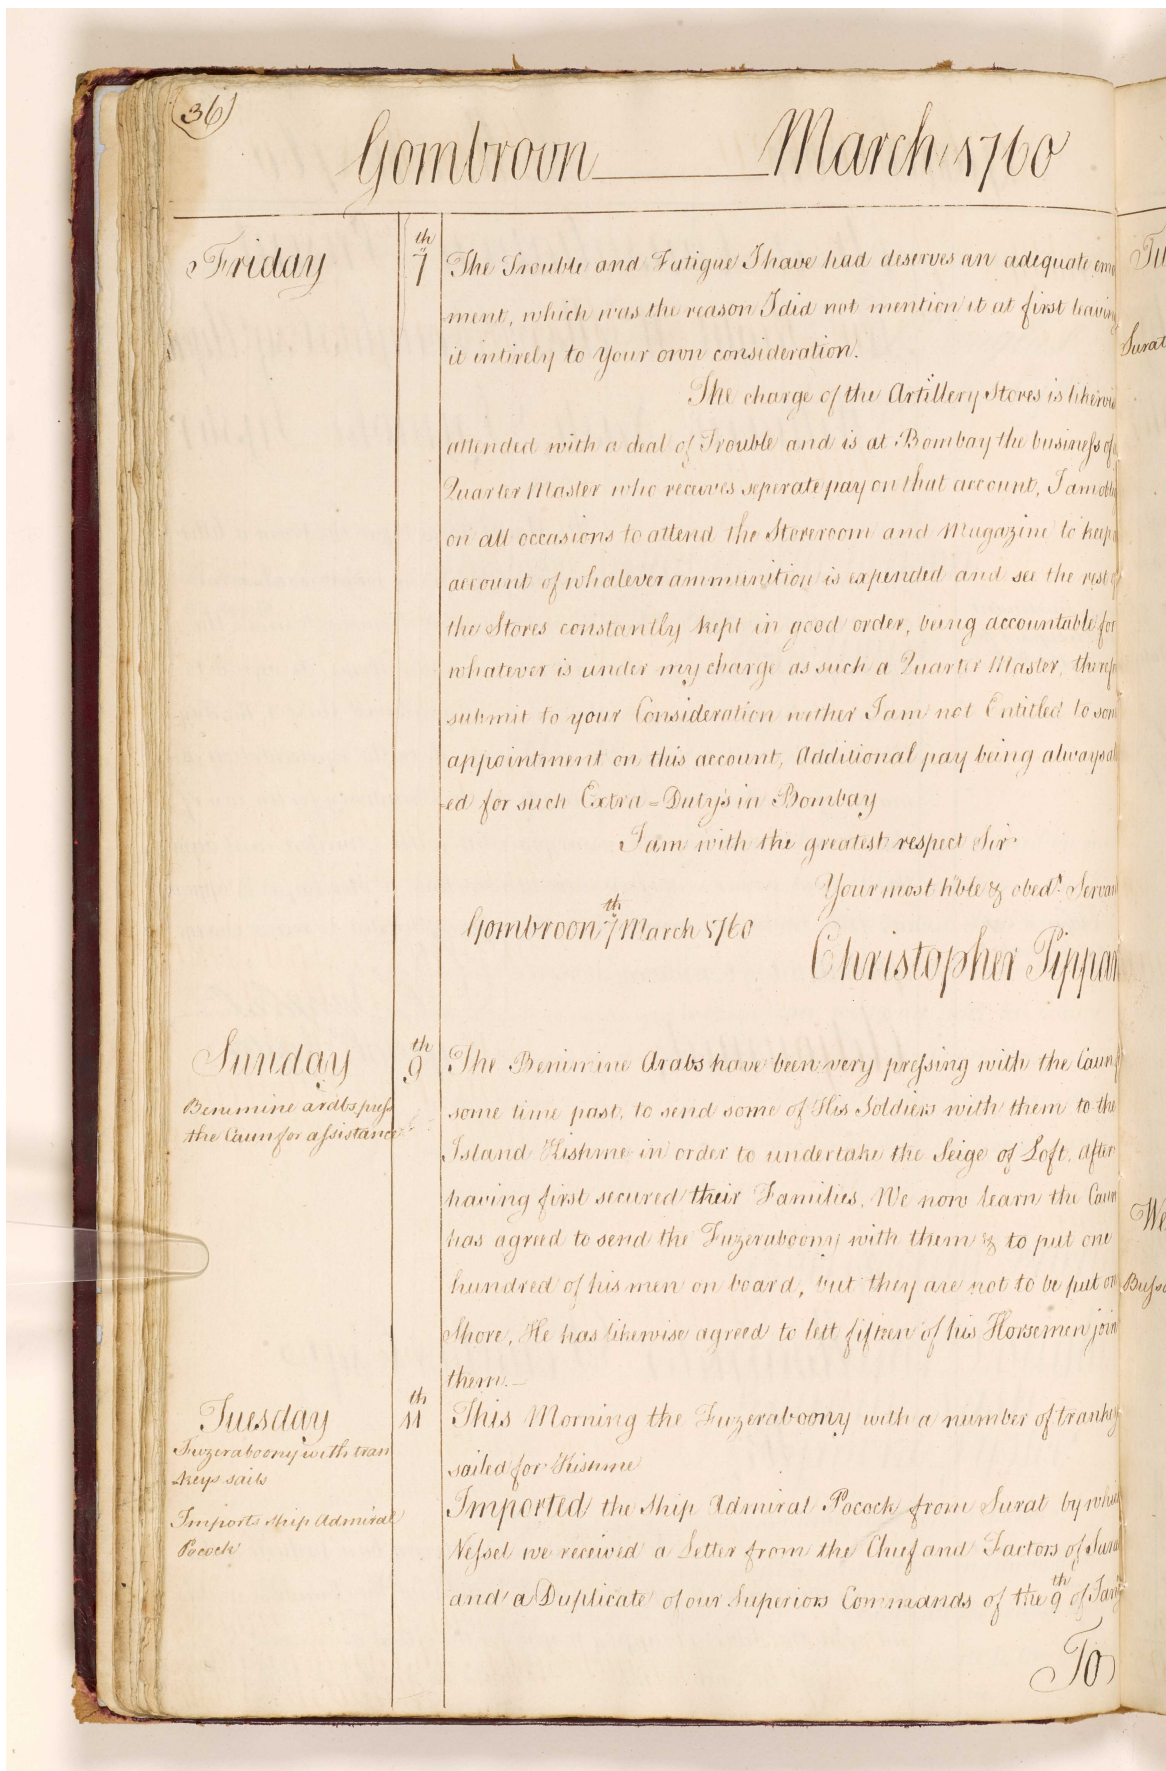 36
Gombroon March 1760
Friday 7th The Trouble and Fatigue I have had deserves an adequate
ment, which was the reason I did not mention it at first leaving
it intirely to Your own consideration.
The charge of the Artillery Stores is likewi
attended with a deal of Trouble and is at Bombay the business of
Quarter Master who receives seperate pay on that account, I am obli
on all occasions to attend the Storeroom and Magazine to keep
account of whatever ammunition is expended and see the rest
the Stores constantly kept in good order, being accountable for
whatever is under my charge as such a Quarter Master, theref
submit to your Consideration wether I am not Entitled to som
appointment on this account, Additional pay being always al
ed for such Extra=Duty's in Bombay
I am with the greatest respect Sir
Your most h'ble & obedt. Servan
Gombroon 7th March 1760
Christopher Pippar
Sunday 9th The Benimine Arabs have been very pressing with the Caun
Benimine arabs press
the Caun for assistance
some time past, to send some of His Soldiers with them to the
Island Kishme in order to undertake the Seige of Loft, after
having first secured their Families, We now learn the Caun
has agreed to send the Fuzeraboony with them & to put one
hundred of his men on board, but they are not to be put on
Shore, He has likewise agreed to lett fifteen of his Horsemen join
them.
Tuesday 11th This Morning the Fuzeraboony with a number of trankeys
Fuzeraboony with tran
keys sails
sailed for Kishme
Imports ship Admiral
Pocock
Imported the Ship Admiral Pocock from Surat by which
Vessel we received a Letter from the Chief and Factors of Surat
and a Duplicate of our Superiors Commands of the 9th of Jan
To